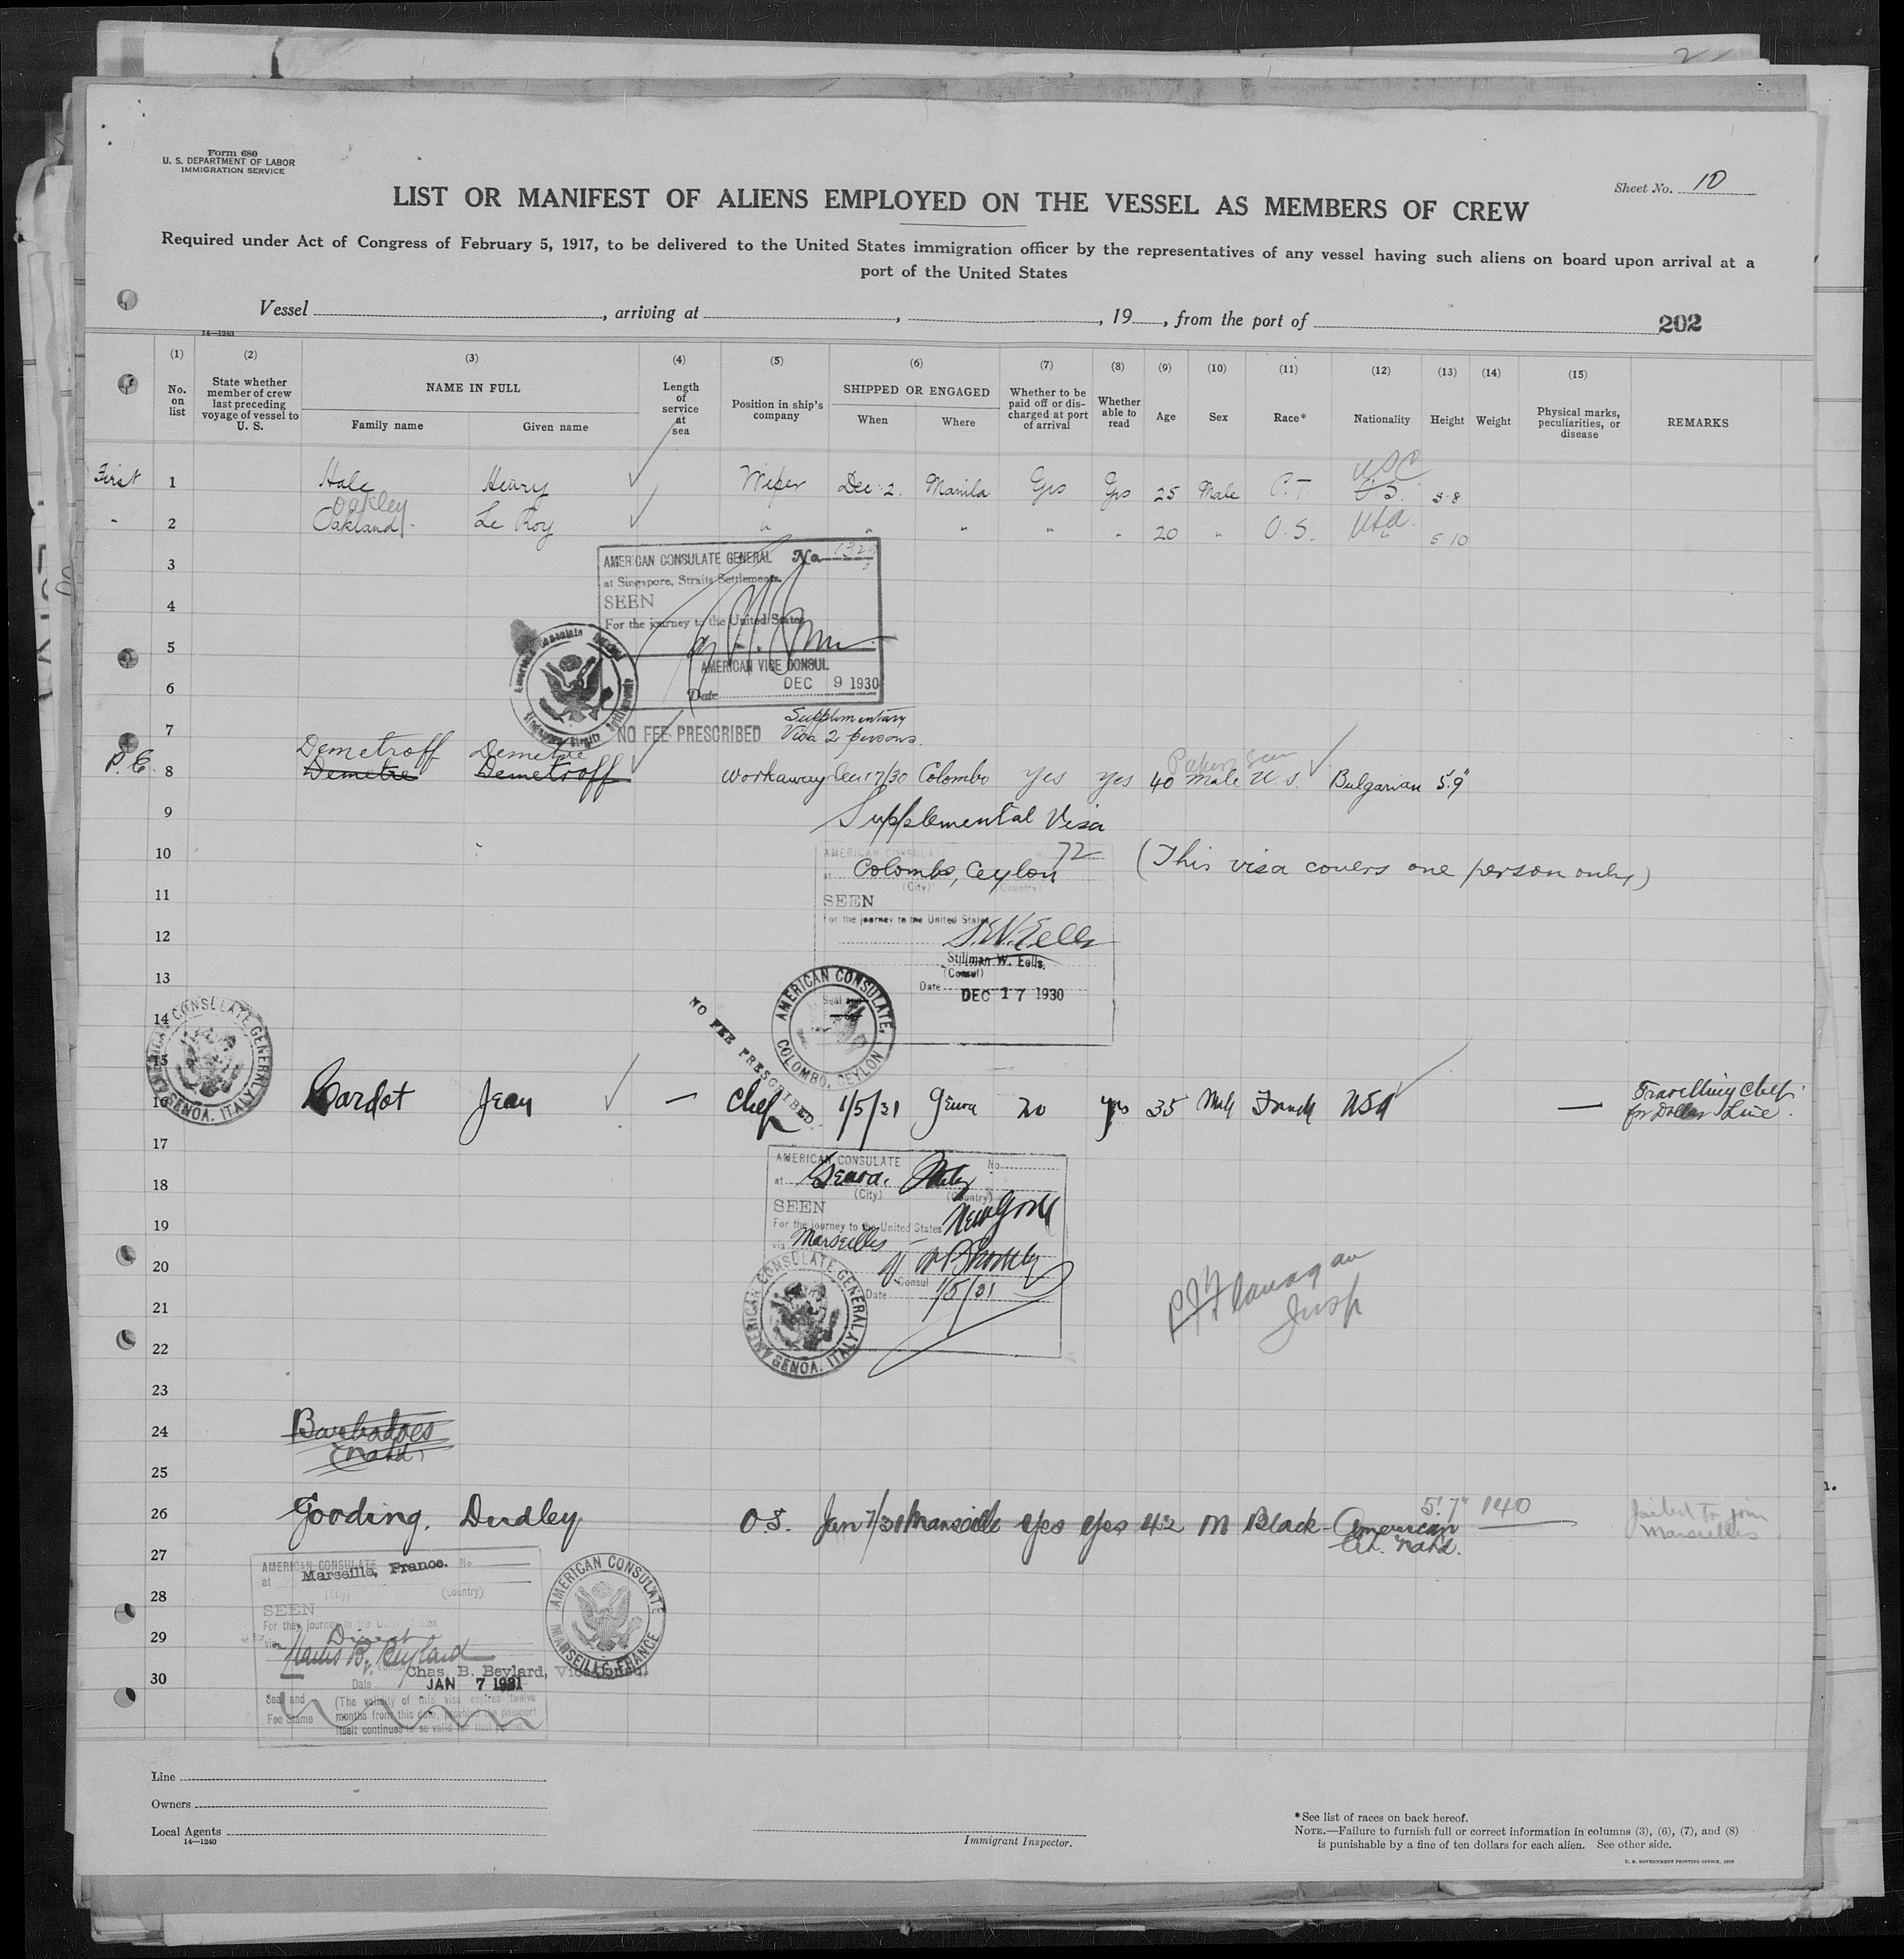 Form 680
U. S. DEPARTMENT OF LABOR
IMMIGRATION SERVICE
Sheet No. 10
LIST OR MANIFEST OF ALIENS EMPLOYED ON THE VESSEL AS MEMBERS OF CREW
Required under Act of Congress of February 5, 1917, to be delivered to the United States immigration officer by the representatives of any vessel having such aliens on board upon arrival at a
port of the United States
Vessel , arriving at , , 19 , from the port of 202
14—1240
(1) (2) (3) (4) (5) (6) (7) (8) (9) (10) (11) (12) (13) (14) (15)
No. on list
State whether member of crew last preceding voyage of vessel to U. S.
NAME IN FULL
Family name
Given name
Length of service at sea
Position in ship's company
SHIPPED OR ENGAGED
When
Where
Whether to be paid off or discharged at port of arrival
Whether able to read
Age
Sex
Race*
Nationality
Height
Weight
Physical marks, peculiarities, or disease
REMARKS
USC
First 1 Hale Henry Wiper Dec. 2. Manila Yes Yes 25 Male U.S. 5 8
Oakley
2 Oakland Le Roy " " " " " 20 " U.S. USA " 5 10
3
AMERICAN CONSULATE GENERAL No
at Singapore, Straits Settlements.
SEEN
4
For the journey to the United States
5
AMERICAN VICE CONSUL
6
Date DEC 9 1930
7
NO FEE PRESCRIBED Supplimentary
Visa 2 persons.
Demetroff Demetre
Papers seen
P.E. 8 Demetre Demetroff Workaway Dec 17/30 Colombo Yes Yes 40 Male U.S. Bulgarian 5'9"
9 Supplemental Visa
10
72
AMERICAN CONSULATE
at Colombo, Ceylon (This visa covers one person only)
(City) (Country)
11
SEEN
For the journey to the United States
12
S.W. Eells
Stillman W. Eells.
(Consul)
13
Date DEC 17 1930
Seal and
AMERICAN CONSULATE, COLOMBO, CEYLON
NO FEE PRESCRIBED
14
AMERICAN CONSULATE GENERAL GENOA. ITALY
15
16 Bardot Jean — Chef 1/5/31 Genoa no yes 35 Male French USA — Travelling Chef
for Dollar Line.
17
AMERICAN CONSULATE No.
18
at Genoa, Italy
(City) (Country)
SEEN
19
For the journey to the United States New York
via Marseilles
20
Consul
Date 1/5/31
AMERICAN CONSULATE GENERAL GENOA. ITALY
P J Flanagan
Insp
21
22
23
24 Barbadoes
(Natd)
25
26 Gooding, Dudley O.S. Jan 7/31 Marseille Yes Yes 42 M Black American 5'.7" 140 Failed to join
Marseilles
Cit. Natd.
27
AMERICAN CONSULATE No
at Marseille, France.
(City) (Country)
28
SEEN
For the journey to the United States
29
via Direct
Charles B. Beylard
Chas. B. Beylard, Vice Consul
30
Date JAN 7 1931
Seal and
Fee Stamp
(The validity of this visa expires twelve
months from this date, provided the passport
itself continues to be valid for that period.
AMERICAN CONSULATE MARSEILLE, FRANCE
Line
Owners
Local Agents
14—1240
Immigrant Inspector.
*See list of races on back hereof.
NOTE.—Failure to furnish full or correct information in columns (3), (6), (7), and (8)
is punishable by a fine of ten dollars for each alien. See other side.
U. S. GOVERNMENT PRINTING OFFICE, 1929